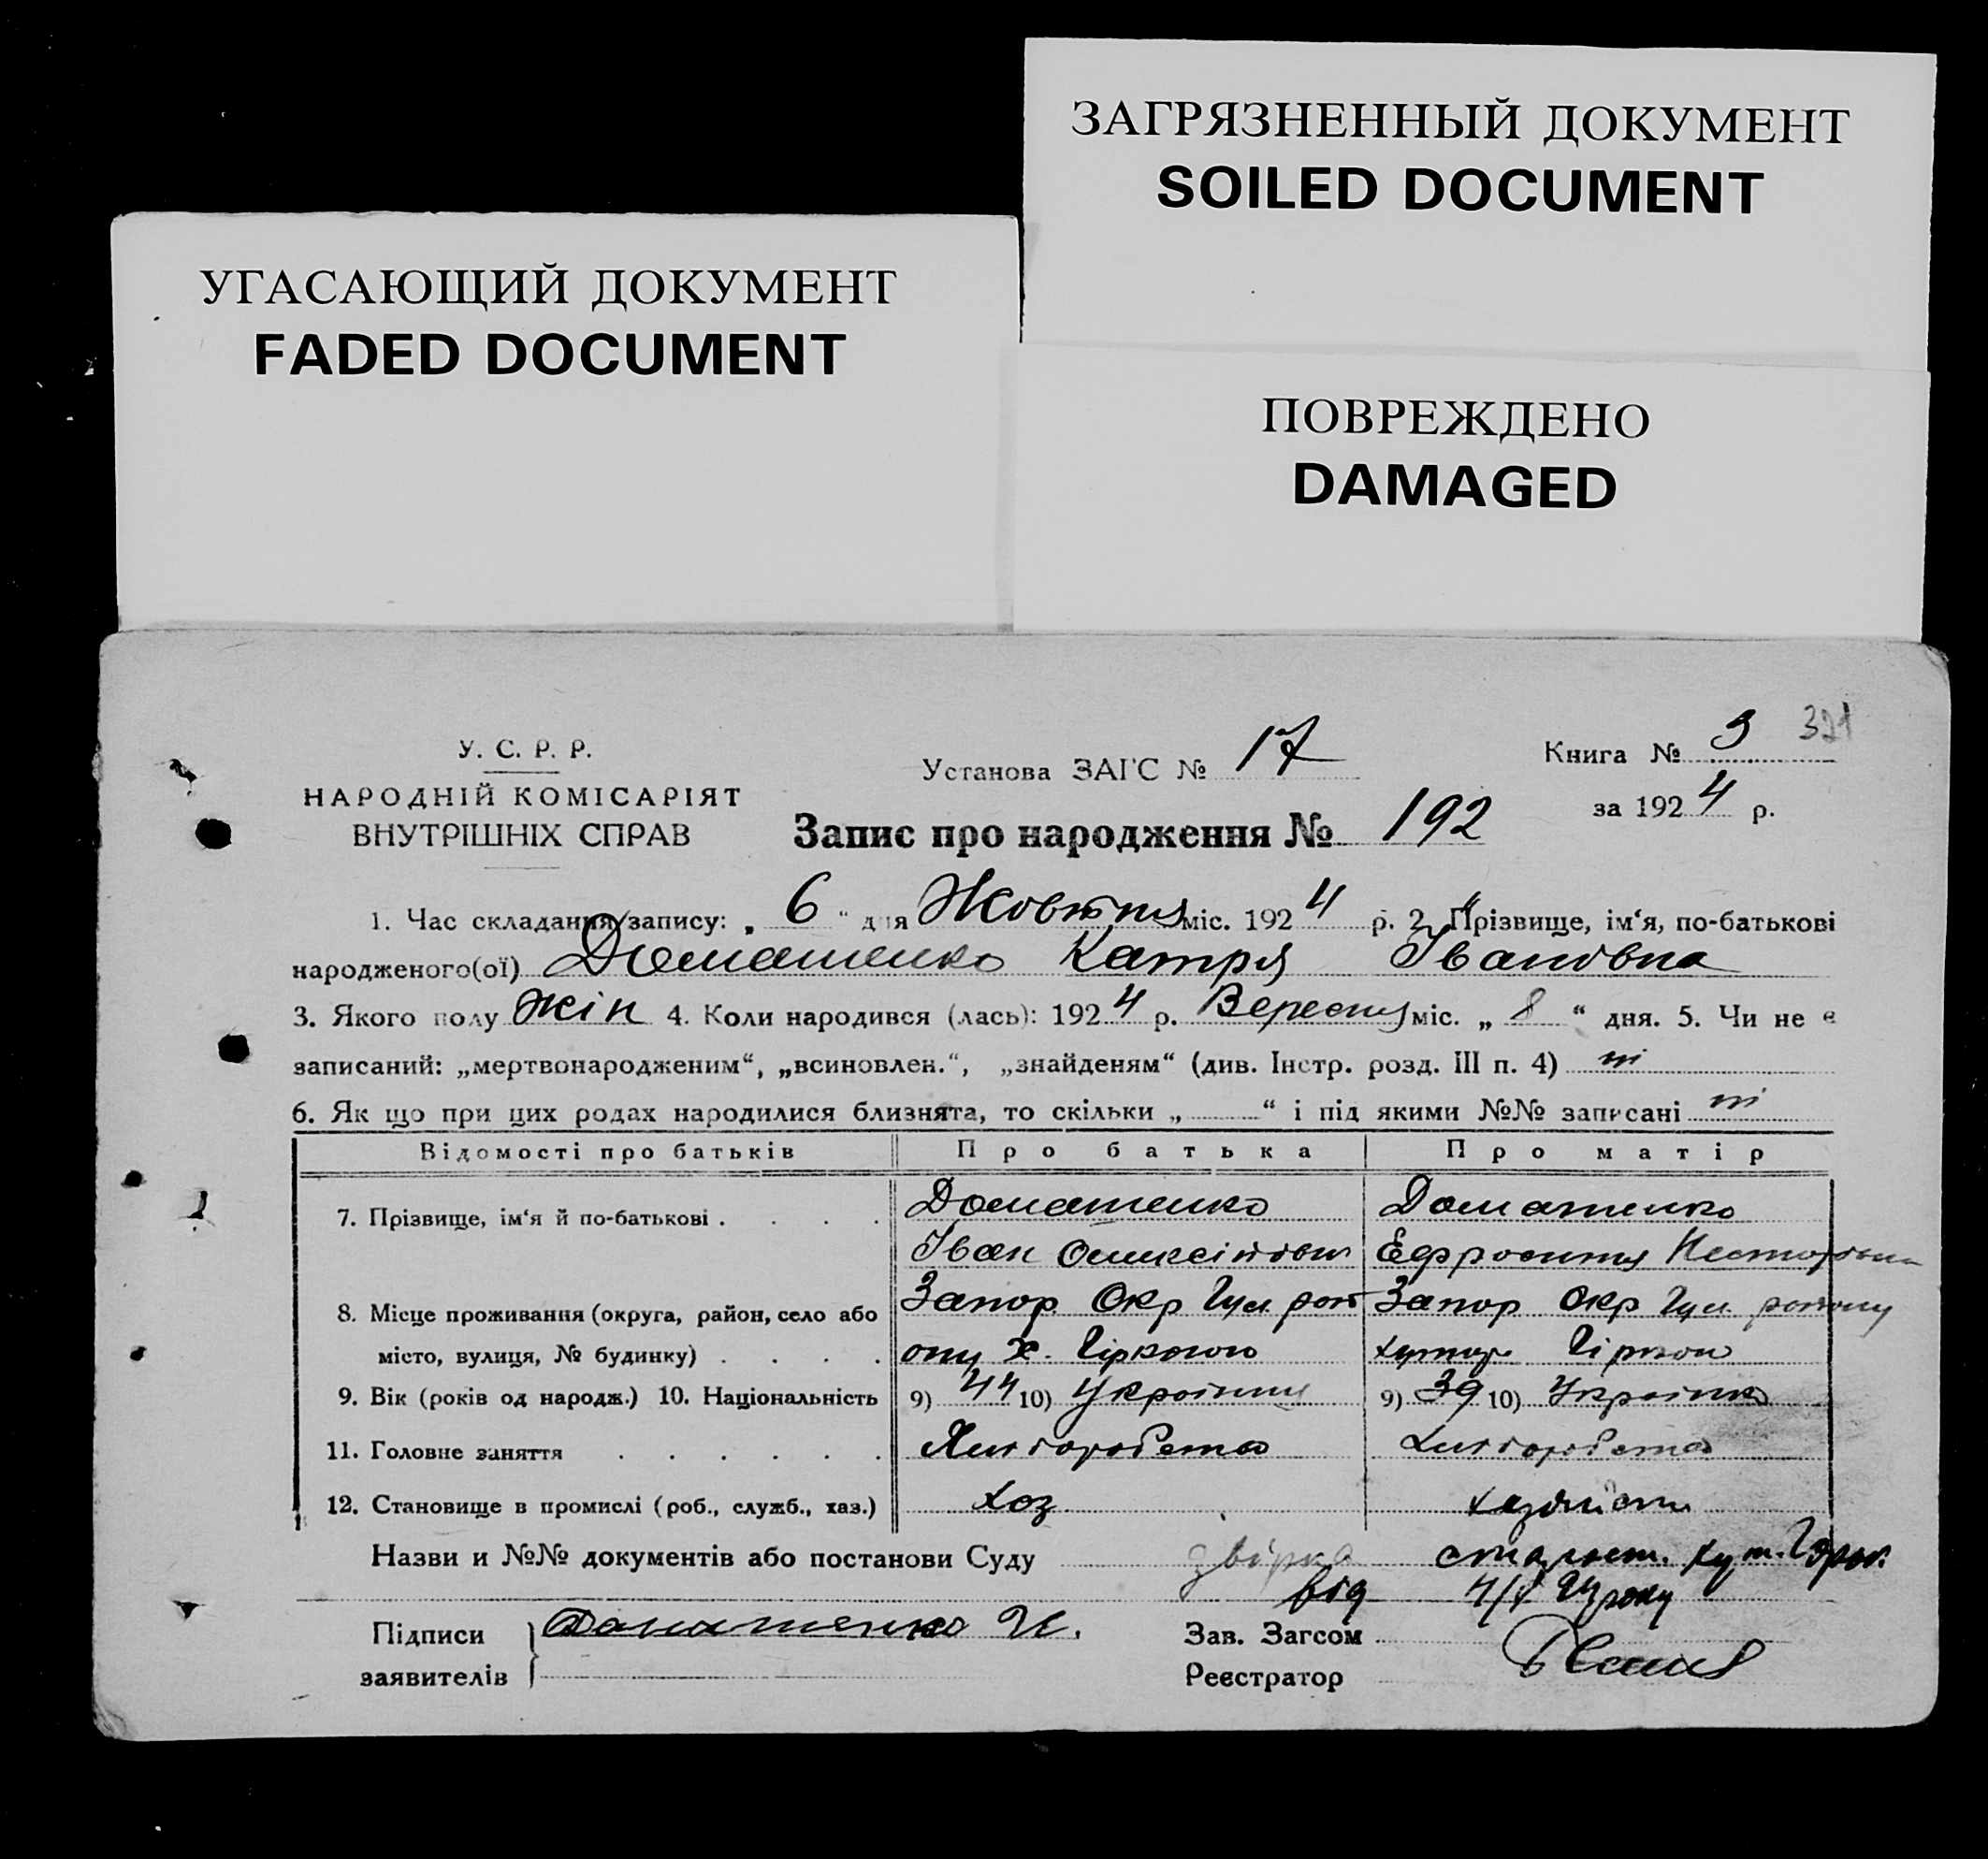 ЗАГРЯЗНЕННЫЙ ДОКУМЕНТ
SOILED DOCUMENT
УГАСАЮЩИЙ ДОКУМЕНТ
FADED DOCUMENT
ПОВРЕЖДЕНО
DAMAGED
У. С. Р. Р.
НАРОДНІЙ КОМІСАРІЯТ
ВНУТРІШНІХ СПРАВ
Установа ЗАГС № 17
Книга № 3 321
за 1924 р.
Запис про народження № 192
1. Час складання запису: „ 6 “ дня Жовтня міс. 1924 р. 2. Прізвище, ім‘я, по-батькові
народженого(ої) Доматенко Катря Івановна
3. Якого полу жін 4. Коли народився (лась): 1924 р. Вересня міс. „ 8 “ дня. 5. Чи не є
записаний: „мертвонародженим“, „всиновлен.“, „знайденям“ (див. Інстр. розд. III п. 4) ні
6. Як що при цих родах народилися близнята, то скільки „ “ і під якими №№ записані ні
Відомості про батьків Про батька Про матір
7. Прізвище, ім‘я й по-батькові . . . . Доматенко Доматенко
Іван Ефросиния Несторовна
Запор. Окр Гул. рай Запор Окр Гул. району
8. Місце проживання (округа, район, село або
місто, вулиця, № будинку) . . . . ону х. хутор
9. Вік (років од народж.) 10. Національність 9) 44 10) Українец 9) 39 10) Українка
11. Головне заняття . . . . . . Хлібороб
12. Становище в промислі (роб., служб., хаз.) хоз
Назви и №№ документів або постанови Суду довірка хут.
від 24 року
Підписи Доматенко И.
заявителів
Зав. Загсом
Реєстратор